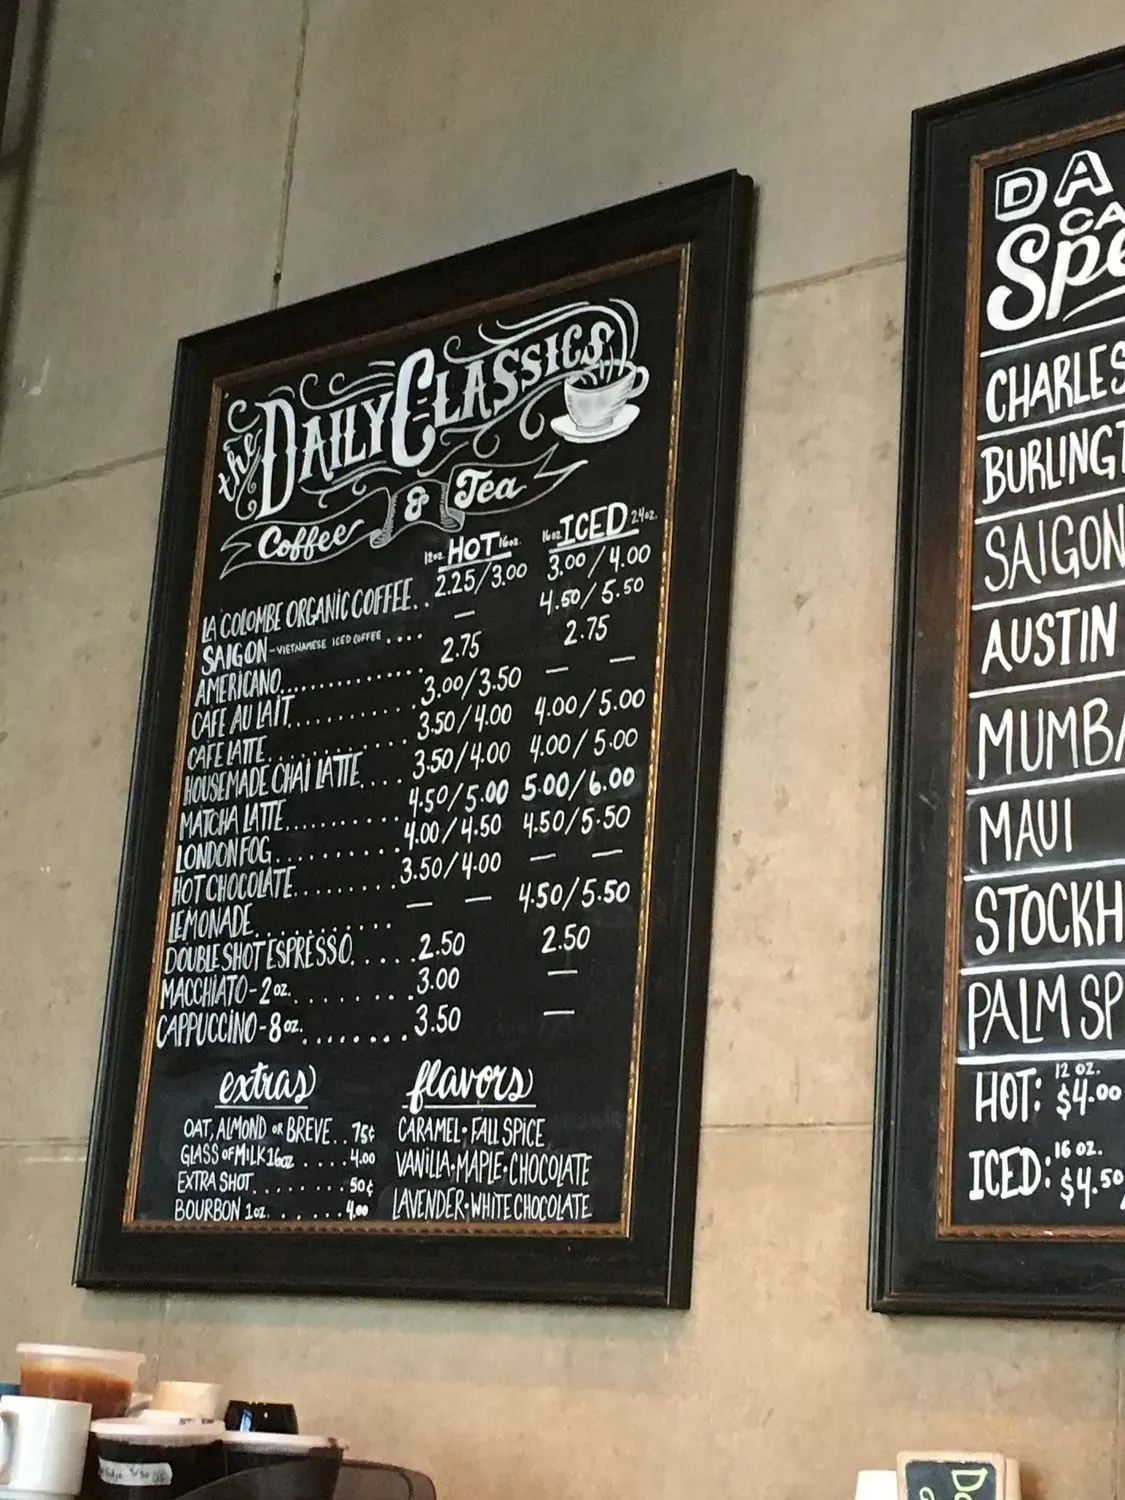 the DAILY CLASSICS
Coffee & Tea
12oz. HOT 16oz. 16oz. ICED 24oz.
LA COLOMBE ORGANIC COFFEE.. 2.25/3.00 3.00/4.00
SAIGON-VIETNAMESE ICED COFFEE.... — 4.50/5.50
AMERICANO.............. 2.75 2.75
CAFE AU LAIT............ 3.00/3.50 — —
CAFE LATTE............ 3.50/4.00 4.00/5.00
HOUSEMADE CHAI LATTE.... 3.50/4.00 4.00/5.00
MATCHA LATTE........... 4.50/5.00 5.00/6.00
LONDON FOG............ 4.00/4.50 4.50/5.50
HOT CHOCOLATE......... 3.50/4.00 — —
LEMONADE............ — — 4.50/5.50
DOUBLE SHOT ESPRESSO...... 2.50 2.50
MACCHIATO-2oz......... 3.00 —
CAPPUCCINO-8oz......... 3.50 —
extras
OAT, ALMOND OR BREVE.. 75¢
GLASS OF MILK 16oz..... 4.00
EXTRA SHOT........ 50¢
BOURBON 1oz....... 4.00
flavors
CARAMEL • FALL SPICE
VANILLA • MAPLE • CHOCOLATE
LAVENDER • WHITE CHOCOLATE
DA
CA
Spe
CHARLES
BURLINGT
SAIGON
AUSTIN
MUMBA
MAUI
STOCKH
PALM SP
HOT: 12 OZ. $4.00
ICED: 16 OZ. $4.50/